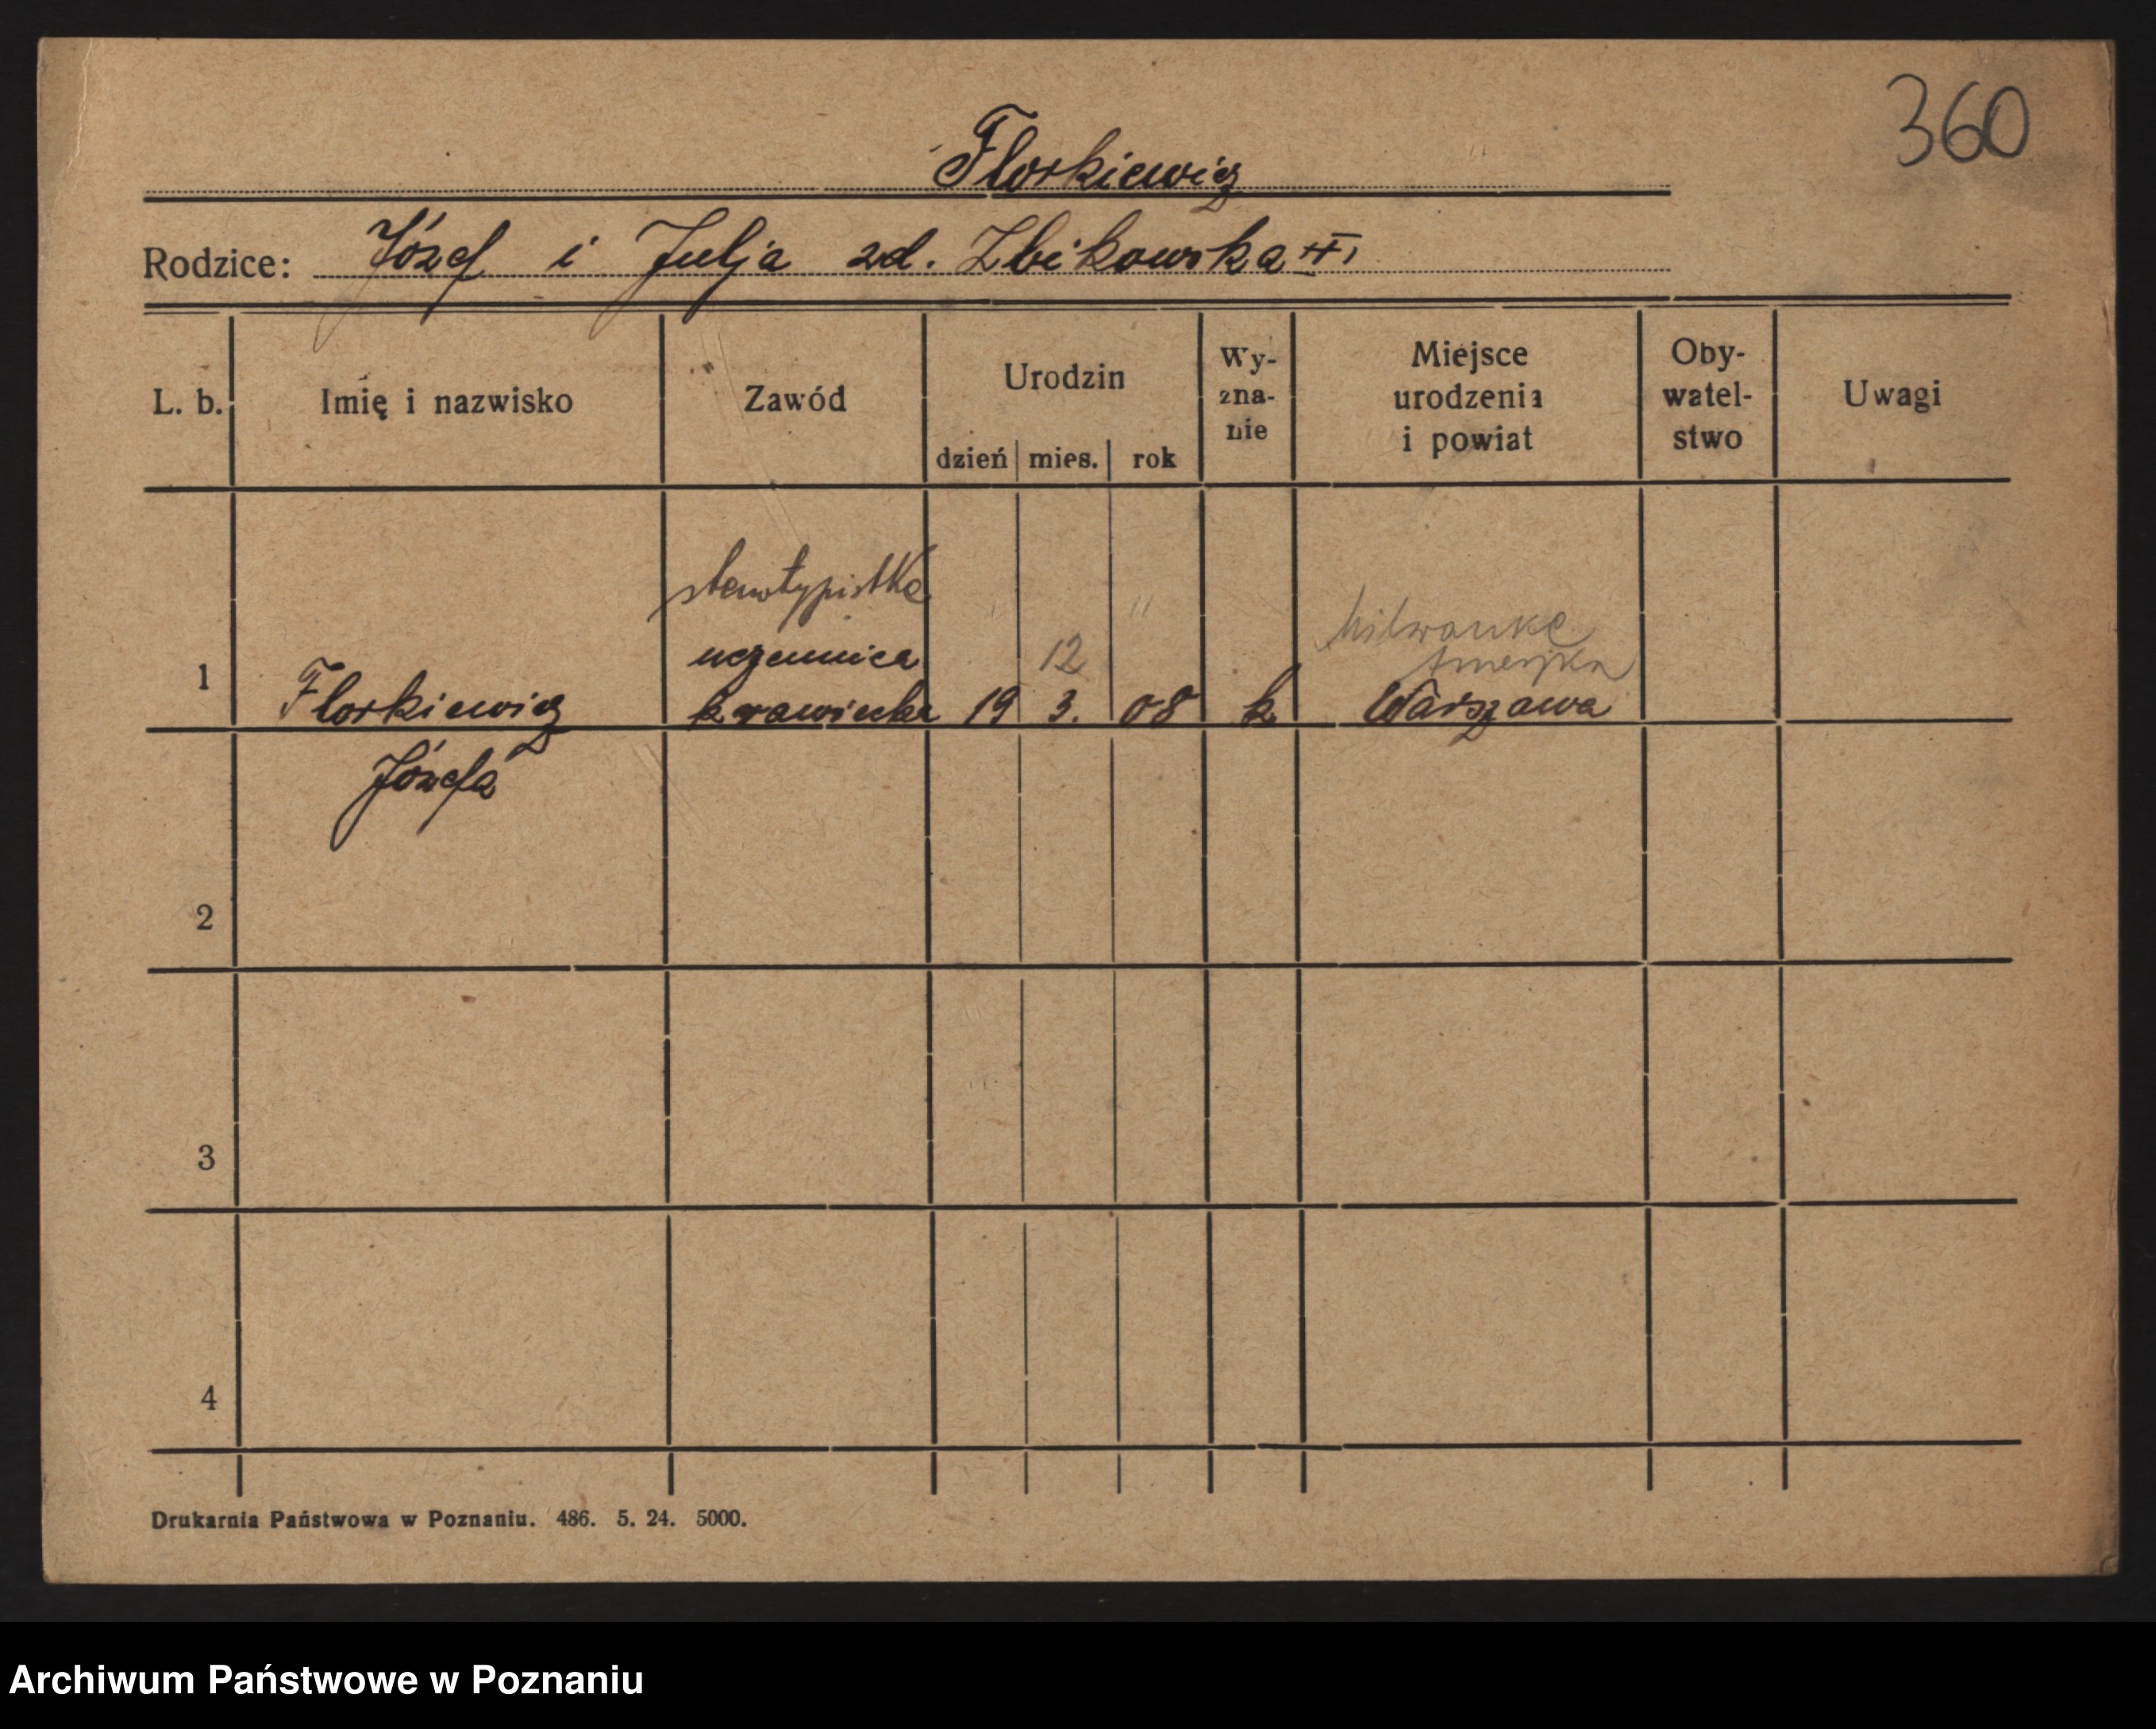 360
Florkiewicz
Rodzice: Józef i Julja zd. Zbikowska
L. b. Imię i nazwisko Zawód Urodzin dzień mies. rok Wy-zna-nie Miejsce urodzenia i powiat Oby-watel-stwo Uwagi
stenotypistka
Milwauke
uczennica 12 Ameryka
1 Florkiewicz krawiecka 19 3. 08 k Warszawa
Józefa
2
3
4
Drukarnia Państwowa w Poznaniu. 486. 5. 24. 5000.
Archiwum Państwowe w Poznaniu